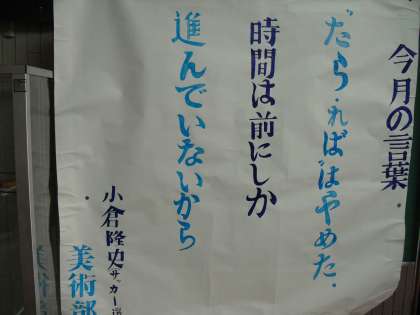 今月の言葉
"たら・ればはやめた.
時間は前にしか
進んでいないから
小倉隆史サッカー選
美術部